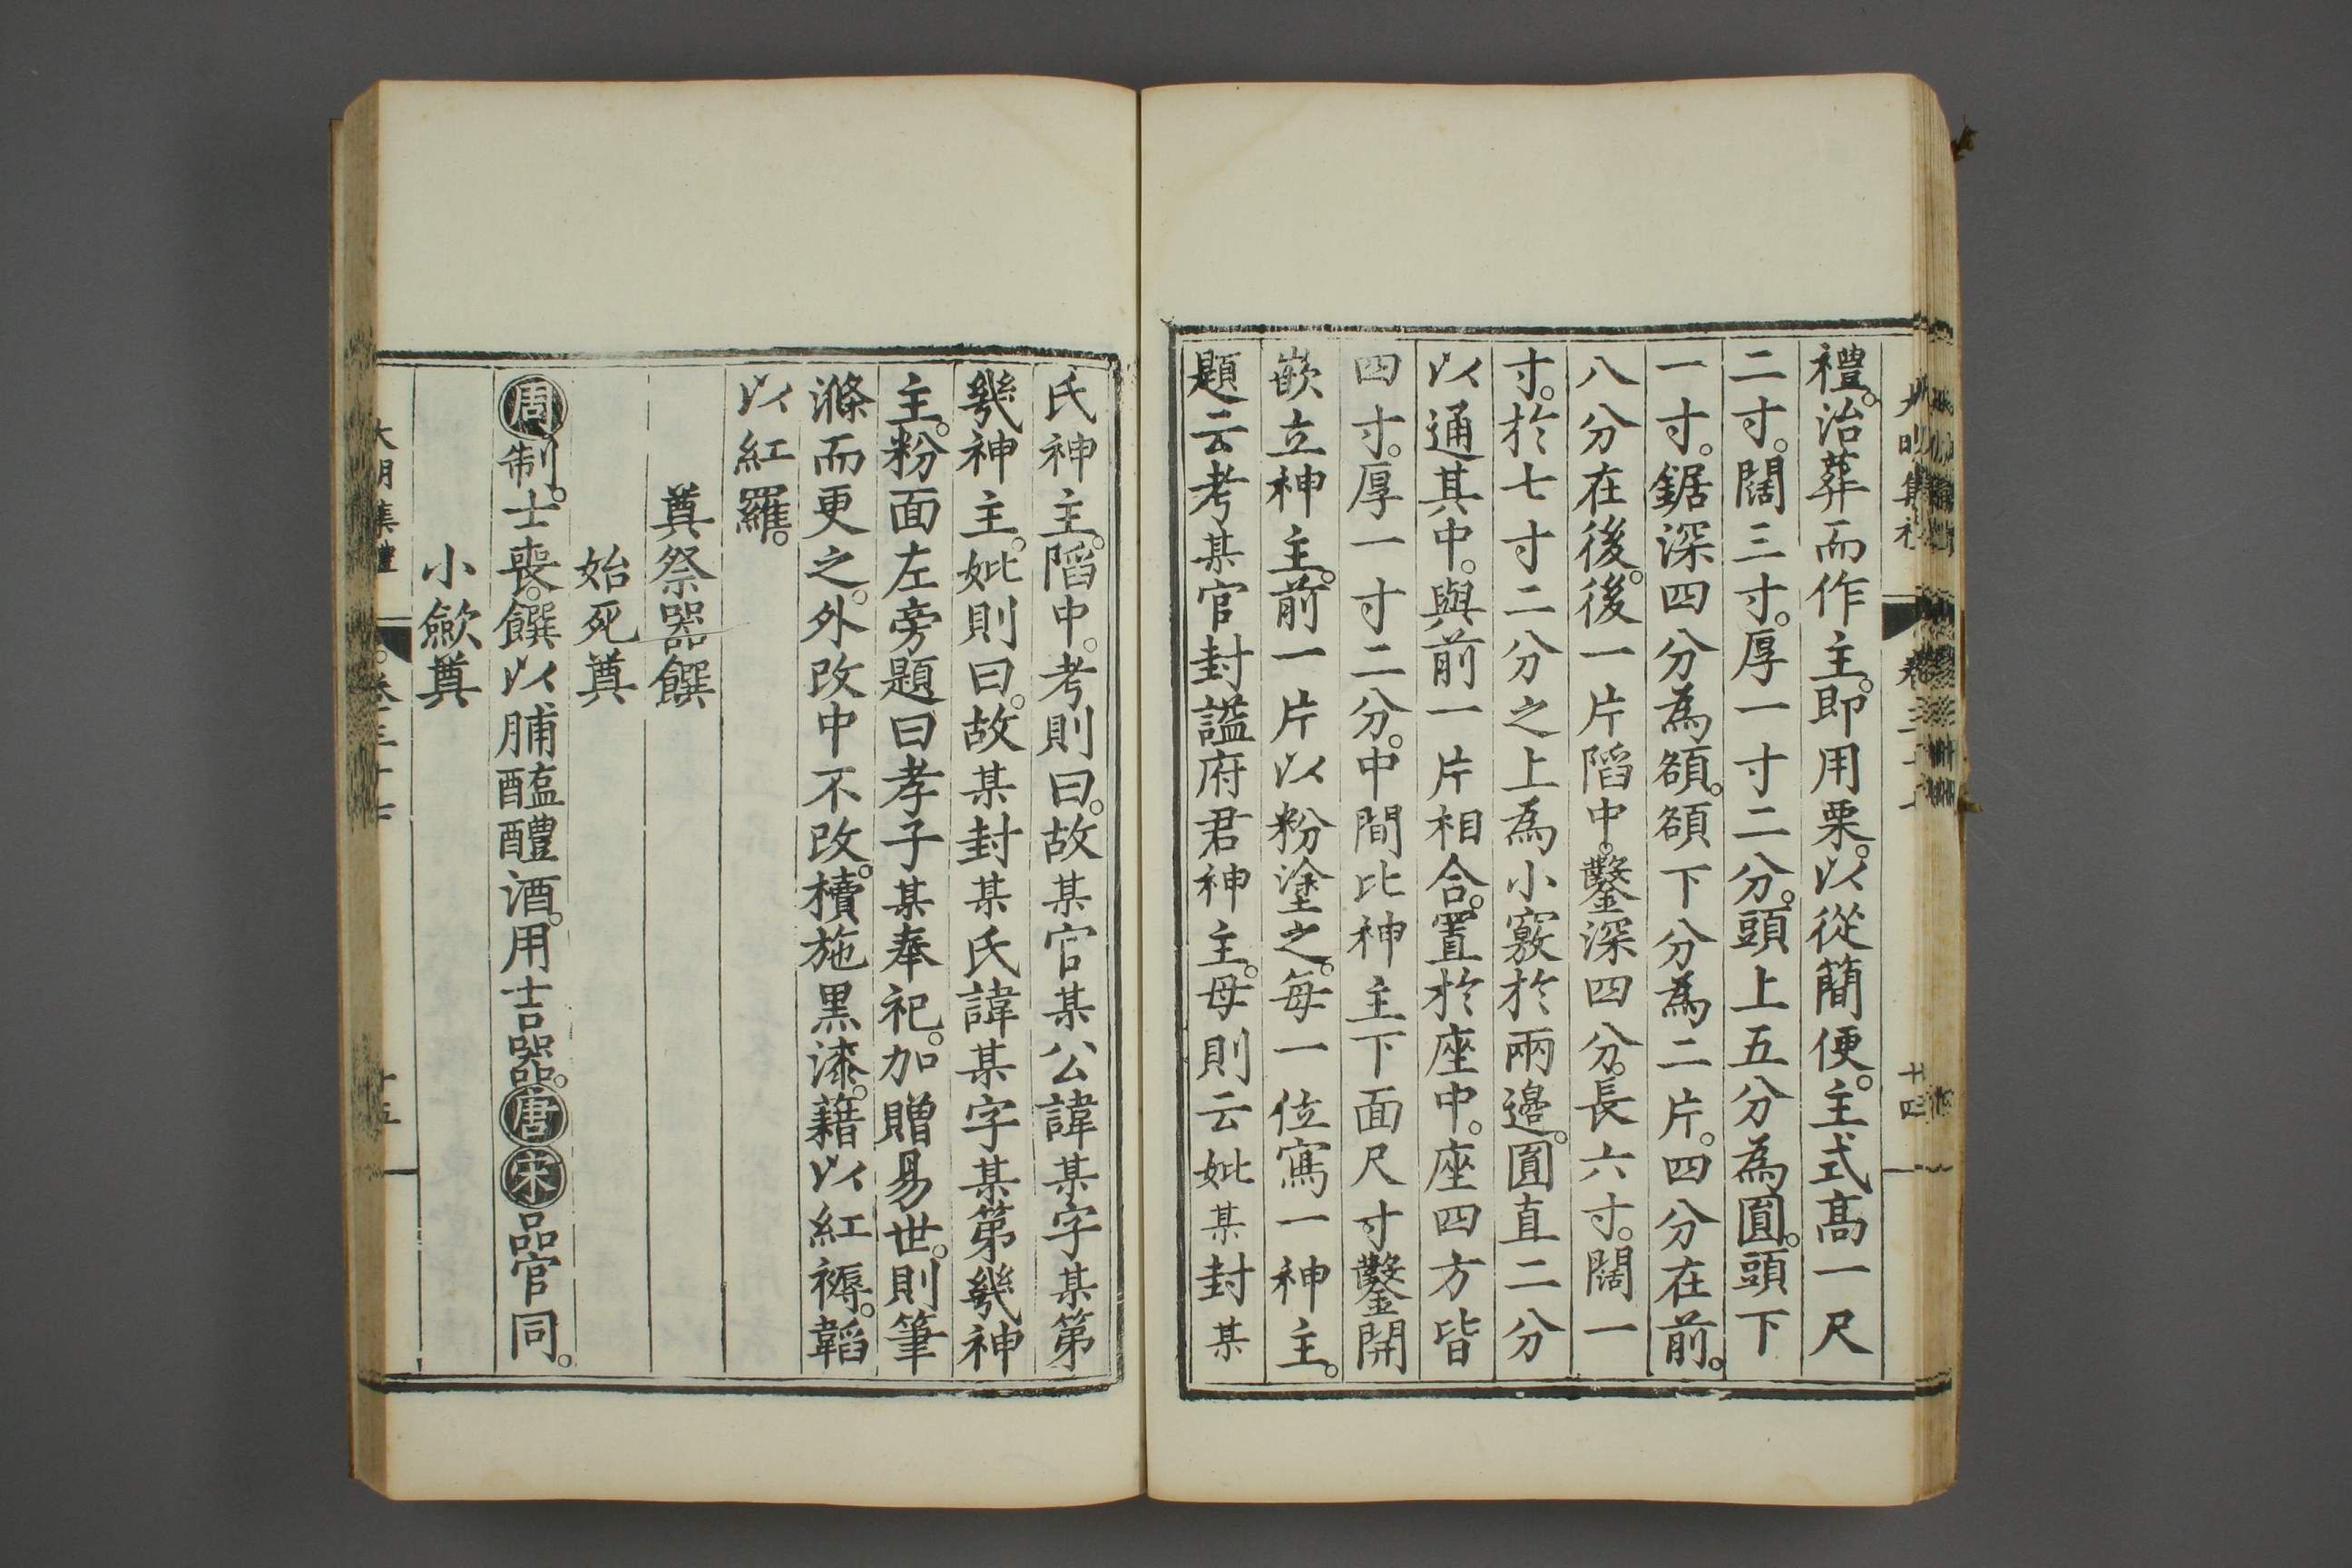 禮。治葬而作主。即用栗。以從簡便。主式高一尺
二寸。闊三寸。厚一寸二分。頭上五分為圓。頭下
一寸。鋸深四分為額。額下分為二片。四分在前。
八分在後。後一片䧟中。鑿深四分。長六寸。闊一
寸。於七寸二分之上為小竅於兩邉。圓直二分
以通其中。與前一片相合。置於座中。座四方皆
四寸。厚一寸二分。中間比神主下面尺寸鑿開
嵌立神主。前一片以粉塗之。每一位寫一神主。
題云考某官封謚府君神主。母則云妣某封某
氏神主。䧟中。考則曰。故某官某公諱某字某第
㡬神主。妣則曰。故某封某氏諱某字某第㡬神
主。粉面左旁題曰孝子某奉祀。加贈易世。則筆
滌而更之。外改中不改。櫝施黒漆。藉以紅褥。韜
以紅羅。
奠祭器饌
始死奠
周制。士喪。饌以脯醢醴酒。用吉器。唐宋品官同。
小歛奠
大明集禮
卷三十七
十五
十四